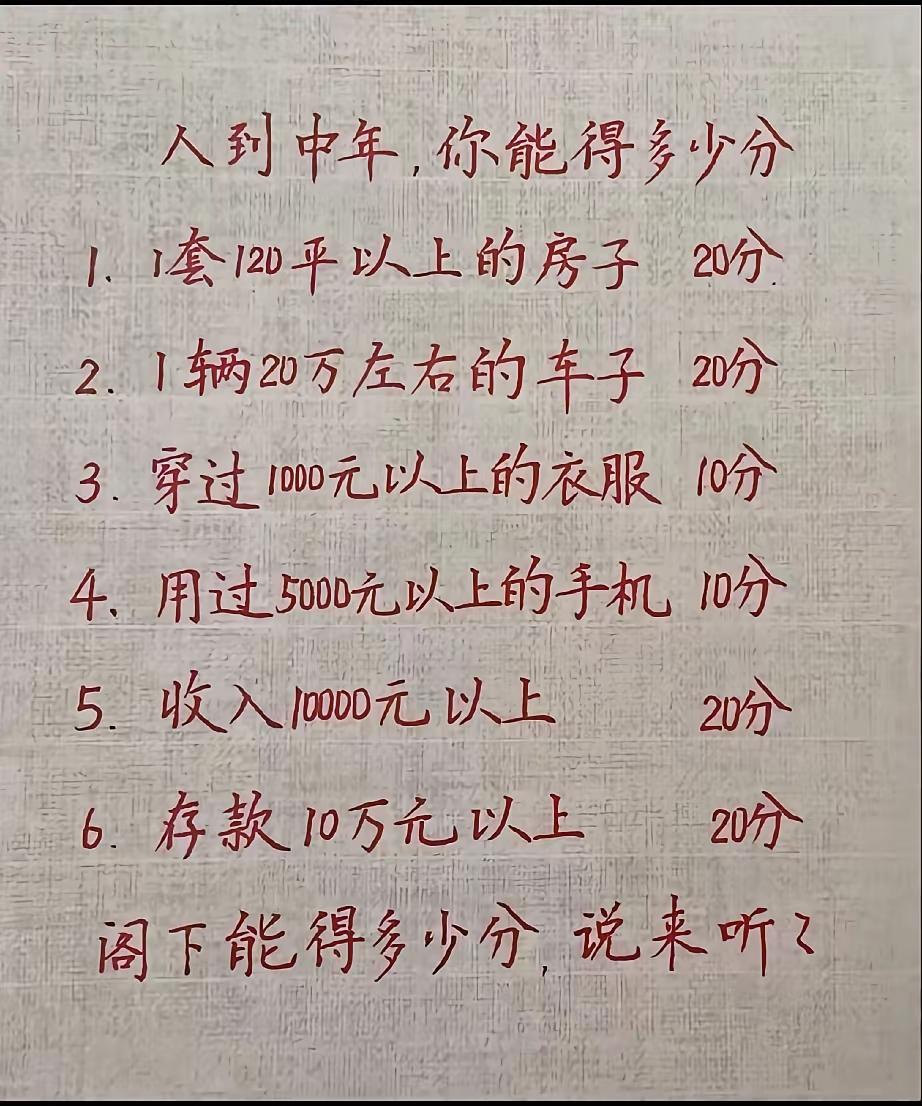 人到中年,你能得多少分
1. 1套120平以上的房子 20分
2. 1辆20万左右的车子 20分
3. 穿过1000元以上的衣服 10分
4、用过5000元以上的手机 10分
5. 收入10000元以上 20分
6. 存款10万元以上 20分
阁下能得多少分,说来听々